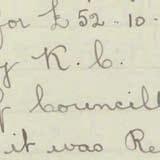 for £ 52-10-
y K. C.
f Councill
it was Re